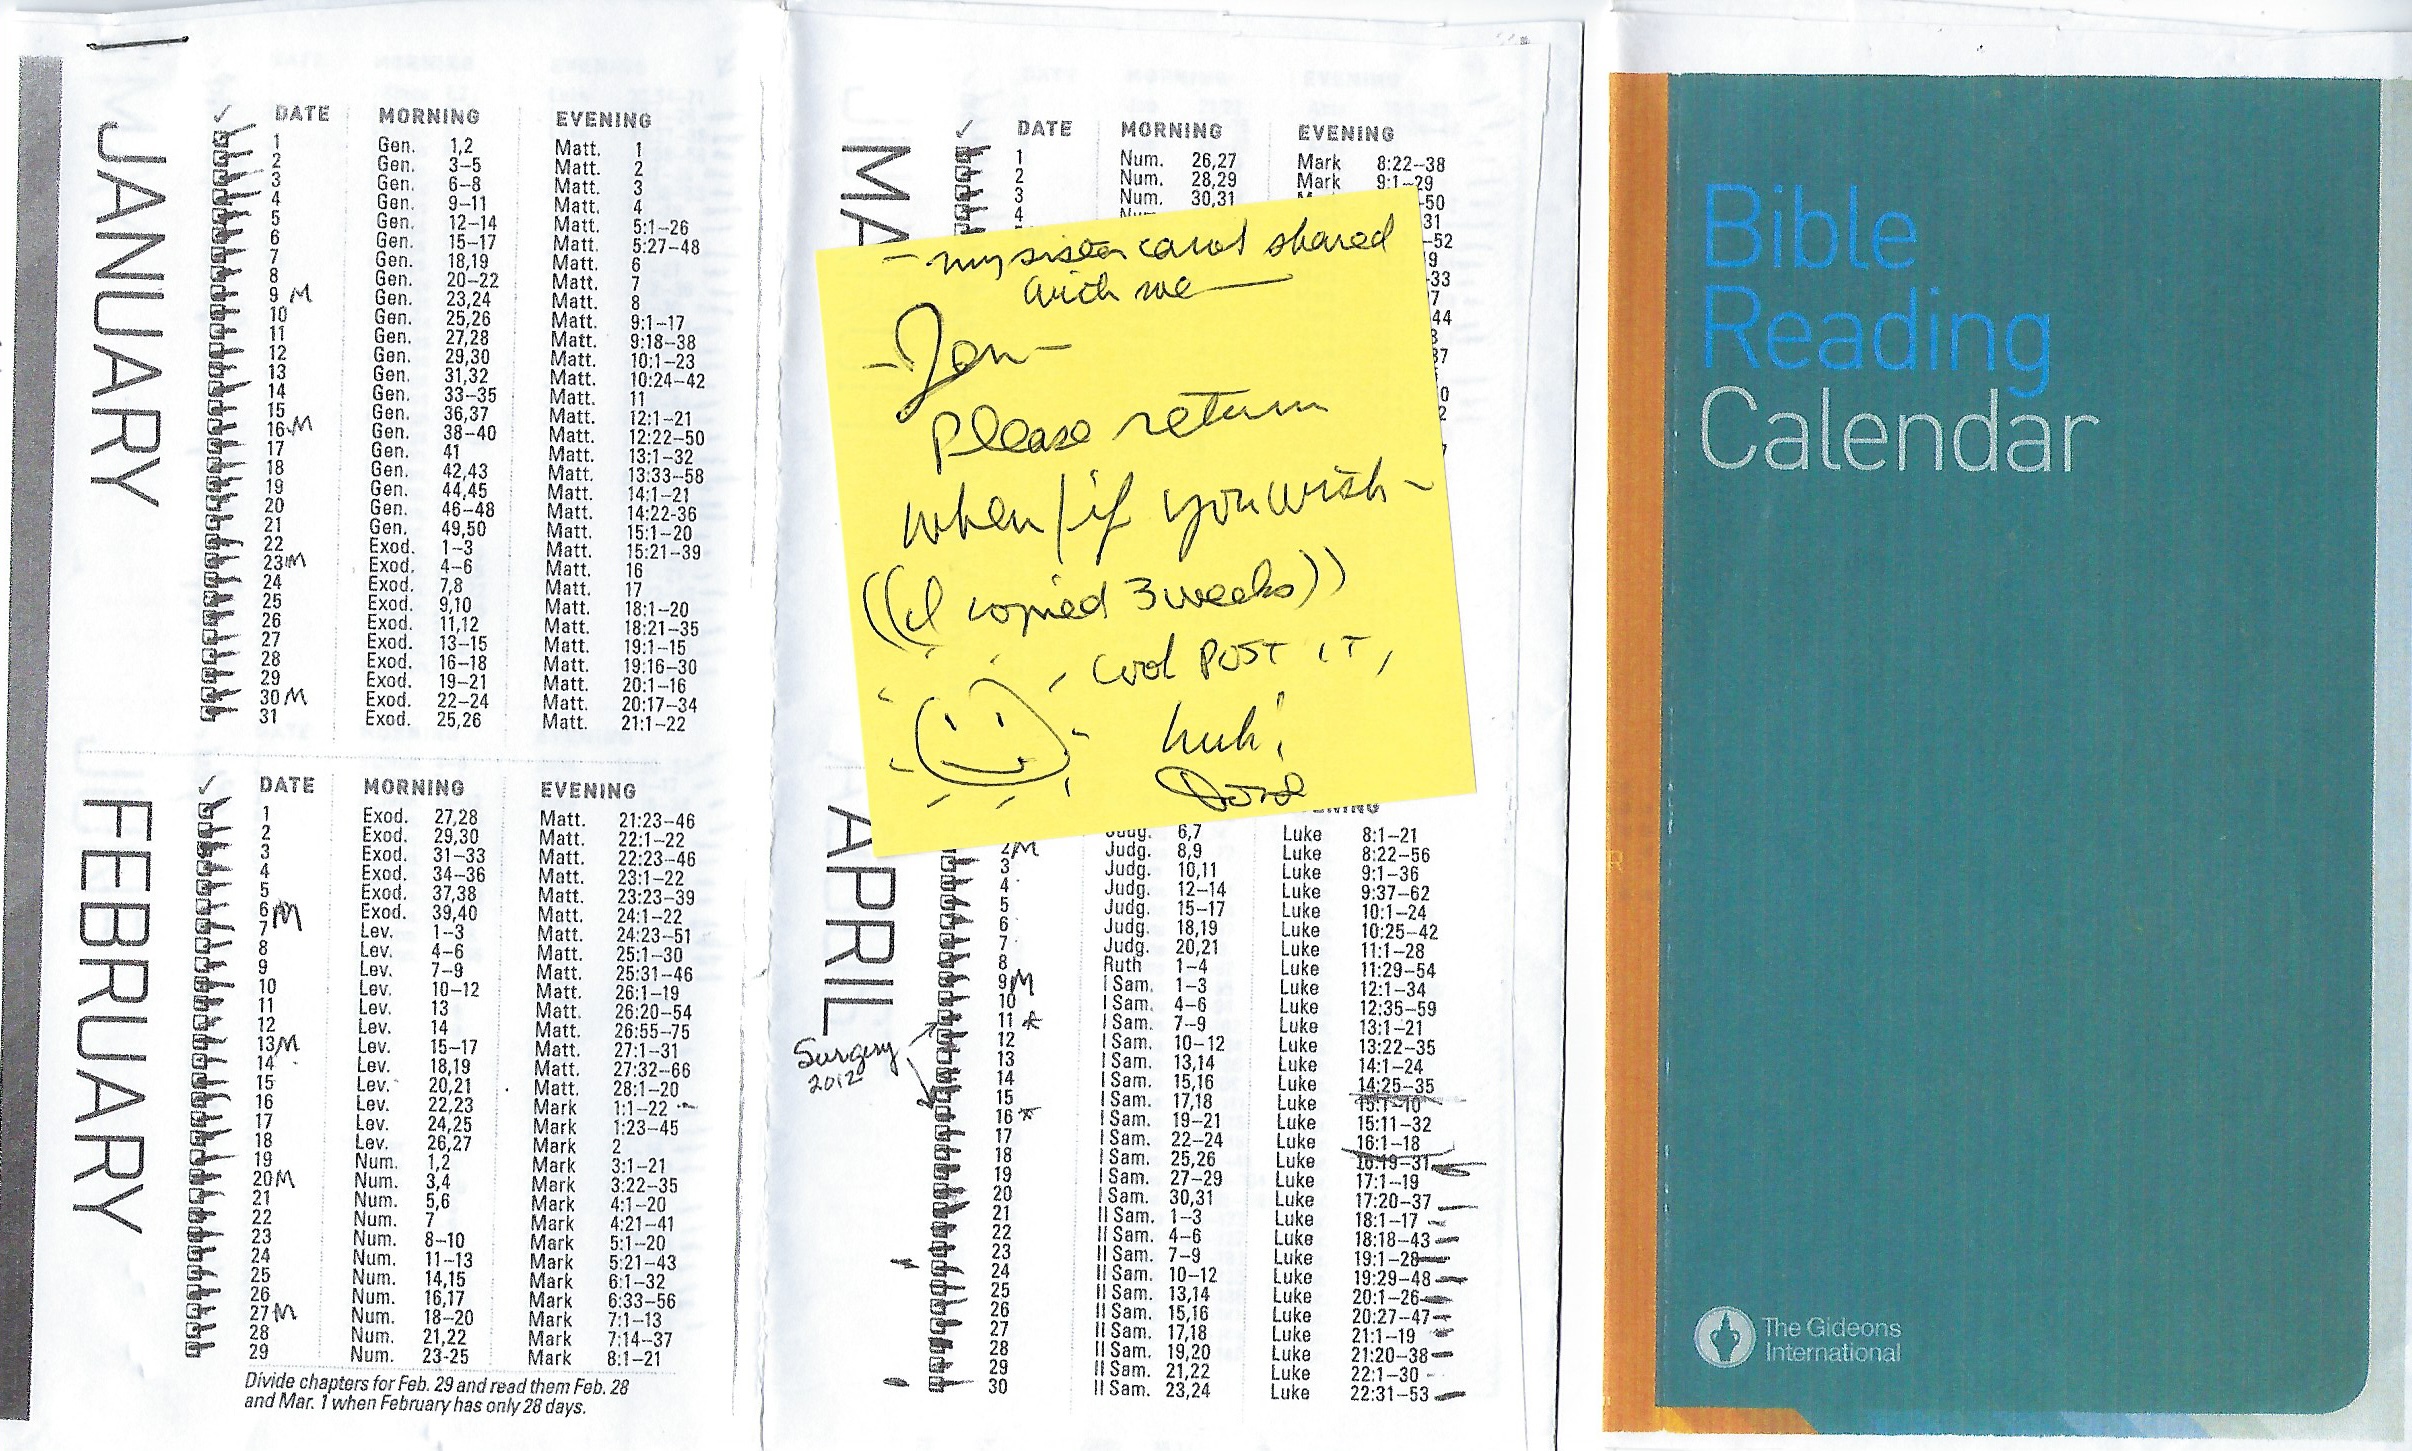 JANUARY
✓ DATE MORNING EVENING
1 Gen. 1,2 Matt. 1
2 Gen. 3–5 Matt. 2
3 Gen. 6–8 Matt. 3
4 Gen. 9–11 Matt. 4
5 Gen. 12–14 Matt. 5:1–26
6 Gen. 15–17 Matt. 5:27–48
7 Gen. 18,19 Matt. 6
8 Gen. 20–22 Matt. 7
9 M Gen. 23,24 Matt. 8
10 Gen. 25,26 Matt. 9:1–17
11 Gen. 27,28 Matt. 9:18–38
12 Gen. 29,30 Matt. 10:1–23
13 Gen. 31,32 Matt. 10:24–42
14 Gen. 33–35 Matt. 11
15 Gen. 36,37 Matt. 12:1–21
16 M Gen. 38–40 Matt. 12:22–50
17 Gen. 41 Matt. 13:1–32
18 Gen. 42,43 Matt. 13:33–58
19 Gen. 44,45 Matt. 14:1–21
20 Gen. 46–48 Matt. 14:22-36
21 Gen. 49,50 Matt. 15:1–20
22 Exod. 1–3 Matt. 15:21–39
23 M Exod. 4–6 Matt. 16
24 Exod. 7,8 Matt. 17
25 Exod. 9,10 Matt. 18:1–20
26 Exod. 11,12 Matt. 18:21–35
27 Exod. 13–15 Matt. 19:1–15
28 Exod. 16–18 Matt. 19:16–30
29 Exod. 19–21 Matt. 20:1–16
30 M Exod. 22–24 Matt. 20:17–34
31 Exod. 25,26 Matt. 21:1–22
FEBRUARY
✓ DATE MORNING EVENING
1 Exod. 27,28 Matt. 21:23–46
2 Exod. 29,30 Matt. 22:1–22
3 Exod. 31–33 Matt. 22:23–46
4 Exod. 34–36 Matt. 23:1–22
5 Exod. 37,38 Matt. 23:23–39
6 M Exod. 39,40 Matt. 24:1–22
7 Lev. 1–3 Matt. 24:23–51
8 Lev. 4–6 Matt. 25:1–30
9 Lev. 7–9 Matt. 25:31–46
10 Lev. 10–12 Matt. 26:1–19
11 Lev. 13 Matt. 26:20–54
12 Lev. 14 Matt. 26:55–75
13 M Lev. 15–17 Matt. 27:1–31
14 Lev. 18,19 Matt. 27:32–66
15 Lev. 20,21 Matt. 28:1–20
16 Lev. 22,23 Mark 1:1–22
17 Lev. 24,25 Mark 1:23–45
18 Lev. 26,27 Mark 2
19 Num. 1,2 Mark 3:1–21
20 M Num. 3,4 Mark 3:22–35
21 Num. 5,6 Mark 4:1–20
22 Num. 7 Mark 4:21–41
23 Num. 8–10 Mark 5:1–20
24 Num. 11–13 Mark 5:21–43
25 Num. 14,15 Mark 6:1–32
26 Num. 16,17 Mark 6:33–56
27 M Num. 18–20 Mark 7:1–13
28 Num. 21,22 Mark 7:14–37
29 Num. 23-25 Mark 8:1–21
Divide chapters for Feb. 29 and read them Feb. 28
and Mar. 1 when February has only 28 days.
MA
✓ DATE MORNING EVENING
1 Num. 26,27 Mark 8:22–38
2 Num. 28,29 Mark 9:1–29
3 Num. 30,31
4
- my sister carol shared
with me —
- Jan -
Please return
when/if you wish -
((I copied 3 weeks))
cool POST IT,
huh!
APRIL
Judg. 6,7 Luke 8:1–21
2 M Judg. 8,9 Luke 8:22–56
3 Judg. 10,11 Luke 9:1–36
4 Judg. 12–14 Luke 9:37–62
5 Judg. 15–17 Luke 10:1–24
6 Judg. 18,19 Luke 10:25–42
7 Judg. 20,21 Luke 11:1–28
8 Ruth 1–4 Luke 11:29–54
9 M I Sam. 1–3 Luke 12:1–34
10 I Sam. 4–6 Luke 12:35–59
11 * I Sam. 7–9 Luke 13:1–21
12 I Sam. 10–12 Luke 13:22–35
13 I Sam. 13,14 Luke 14:1–24
14 I Sam. 15,16 Luke 14:25–35
15 I Sam. 17,18 Luke 15:1–10
16 * I Sam. 19–21 Luke 15:11–32
17 I Sam. 22–24 Luke 16:1–18
18 I Sam. 25,26 Luke 16:19–31
19 I Sam. 27–29 Luke 17:1–19
20 I Sam. 30,31 Luke 17:20–37
21 II Sam. 1–3 Luke 18:1–17
22 II Sam. 4–6 Luke 18:18–43
23 II Sam. 7–9 Luke 19:1–28
24 II Sam. 10–12 Luke 19:29–48
25 II Sam. 13,14 Luke 20:1–26
26 II Sam. 15,16 Luke 20:27–47
27 II Sam. 17,18 Luke 21:1–19
28 II Sam. 19,20 Luke 21:20–38
29 II Sam. 21,22 Luke 22:1–30
30 II Sam. 23,24 Luke 22:31–53
Surgery
2012
Bible
Reading
Calendar
The Gideons
International